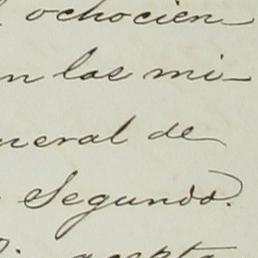 ochocien
en las mi-
neral de
Segundo.
acepta